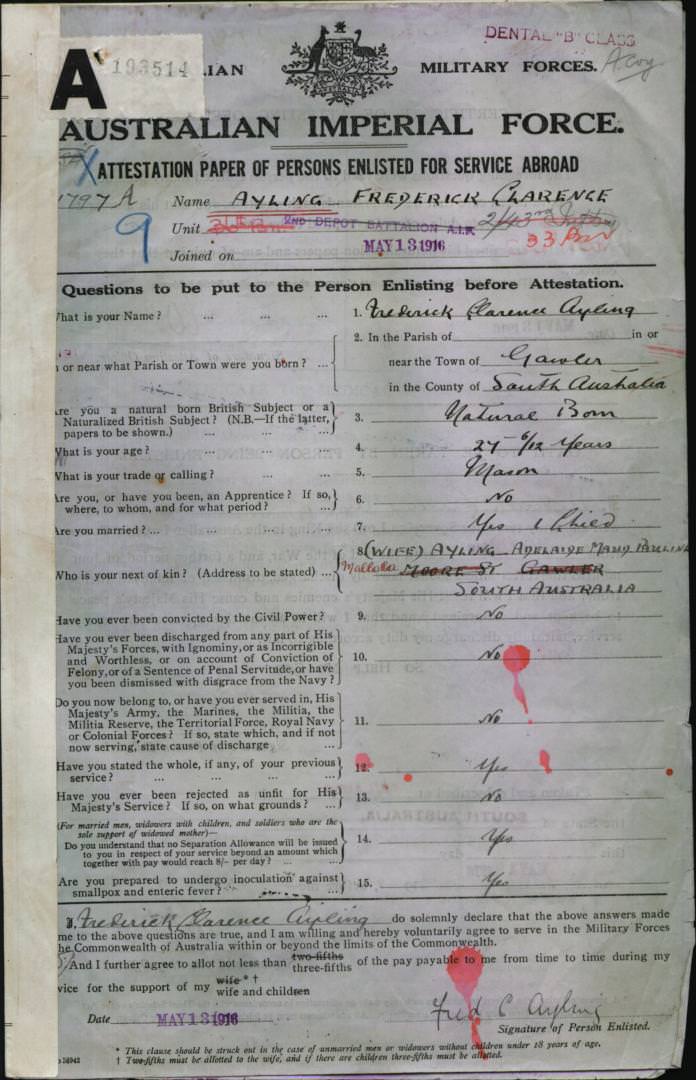 DENTAL "B" CLASS
A coy
A 193514
LIAN MILITARY FORCES.
AUSTRALIAN IMPERIAL FORCE.
X ATTESTATION PAPER OF PERSONS ENLISTED FOR SERVICE ABROAD
1797 A Name AYLING FREDERICK CLARENCE
9 Unit 2ND DEPOT BATTALION A.I.F. 2/43rd
33 Bn
Joined on MAY 13 1916
Questions to be put to the Person Enlisting before Attestation.
hat is your Name? ... ... ... 1. Frederick Clarence Ayling
2. In the Parish of in or
n or near what Parish or Town were you born? ... near the Town of Gawler
in the County of South Australia
Are you a natural born British Subject or a
Naturalized British Subject? (N.B.—If the latter, 3. Natural Born
papers to be shown.) ... ... ...
What is your age? ... ... ... 4. 27 6/12 Years
What is your trade or calling? ... ... 5. Mason
Are you, or have you been, an Apprentice? If so, 6. No
where, to whom, and for what period? ...
Are you married? ... ... ... ... 7. Yes 1 Child
8 (WIFE) AYLING ADELAIDE MAUD PAULINE
Who is your next of kin? (Address to be stated) ... Mallala MOORE ST GAWLER
SOUTH AUSTRALIA
Have you ever been convicted by the Civil Power? 9. No
Have you ever been discharged from any part of His
Majesty's Forces, with Ignominy, or as Incorrigible
and Worthless, or on account of Conviction of 10. No
Felony, or of a Sentence of Penal Servitude, or have
you been dismissed with disgrace from the Navy?
Do you now belong to, or have you ever served in, His
Majesty's Army, the Marines, the Militia, the
Militia Reserve, the Territorial Force, Royal Navy 11. No
or Colonial Forces? If so, state which, and if not
now serving, state cause of discharge ...
Have you stated the whole, if any, of your previous 12. Yes
service? ... ... ... ...
Have you ever been rejected as unfit for His 13. No
Majesty's Service? If so, on what grounds? ...
(For married men, widowers with children, and soldiers who are the
sole support of widowed mother)—
Do you understand that no Separation Allowance will be issued 14. Yes
to you in respect of your service beyond an amount which
together with pay would reach 8/- per day? ... ...
Are you prepared to undergo inoculation against 15. Yes
smallpox and enteric fever? ...
I, Frederick Clarence Ayling do solemnly declare that the above answers made
me to the above questions are true, and I am willing and hereby voluntarily agree to serve in the Military Forces
he Commonwealth of Australia within or beyond the limits of the Commonwealth.
And I further agree to allot not less than two-fifths three-fifths of the pay payable to me from time to time during my
vice for the support of my wife * † wife and children
Fred C Ayling
Date MAY 13 1916 Signature of Person Enlisted.
* This clause should be struck out in the case of unmarried men or widowers without children under 18 years of age.
† Two-fifths must be allotted to the wife, and if there are children three-fifths must be allotted.